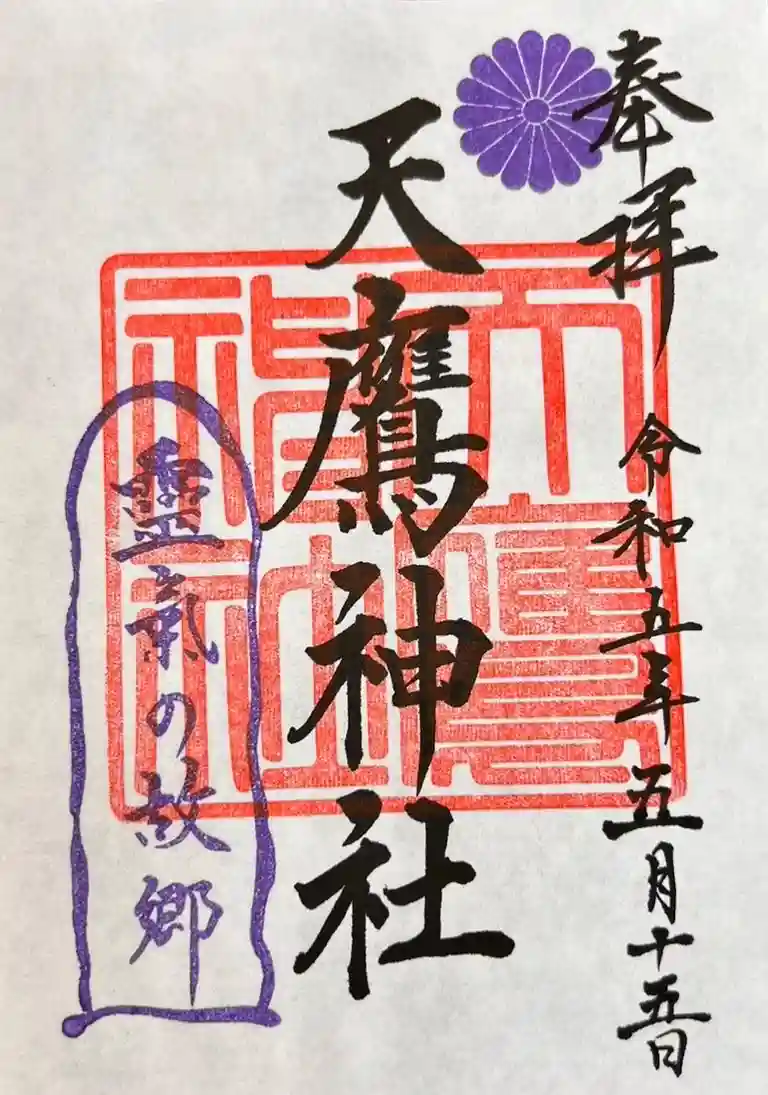 奉拝
令和五年五月十五日
天鷹神社
天鷹神社
靈氣の故郷